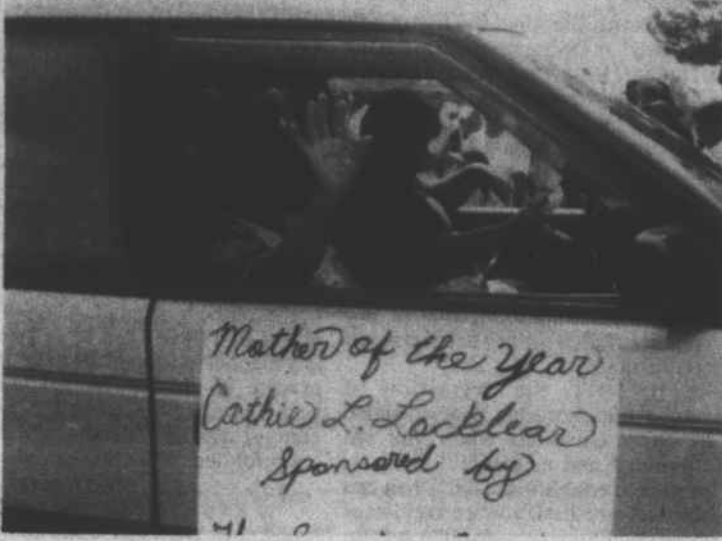 Mother of the Year
Cathie L. Locklear
Sponsored by